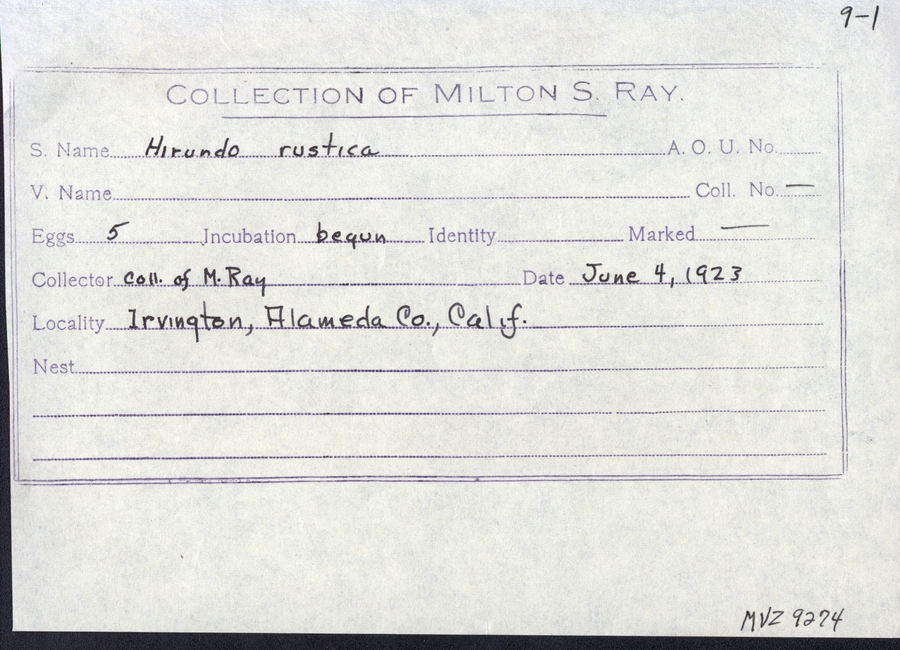 9-1
COLLECTION OF MILTON S. RAY.
S. Name Hirundo rustica A. O. U. No.
V. Name Coll. No. —
Eggs 5 Incubation begun Identity Marked —
Collector Coll. of M. Ray Date June 4, 1923
Locality Irvington, Alameda Co., Calif.
Nest
MVZ 9274